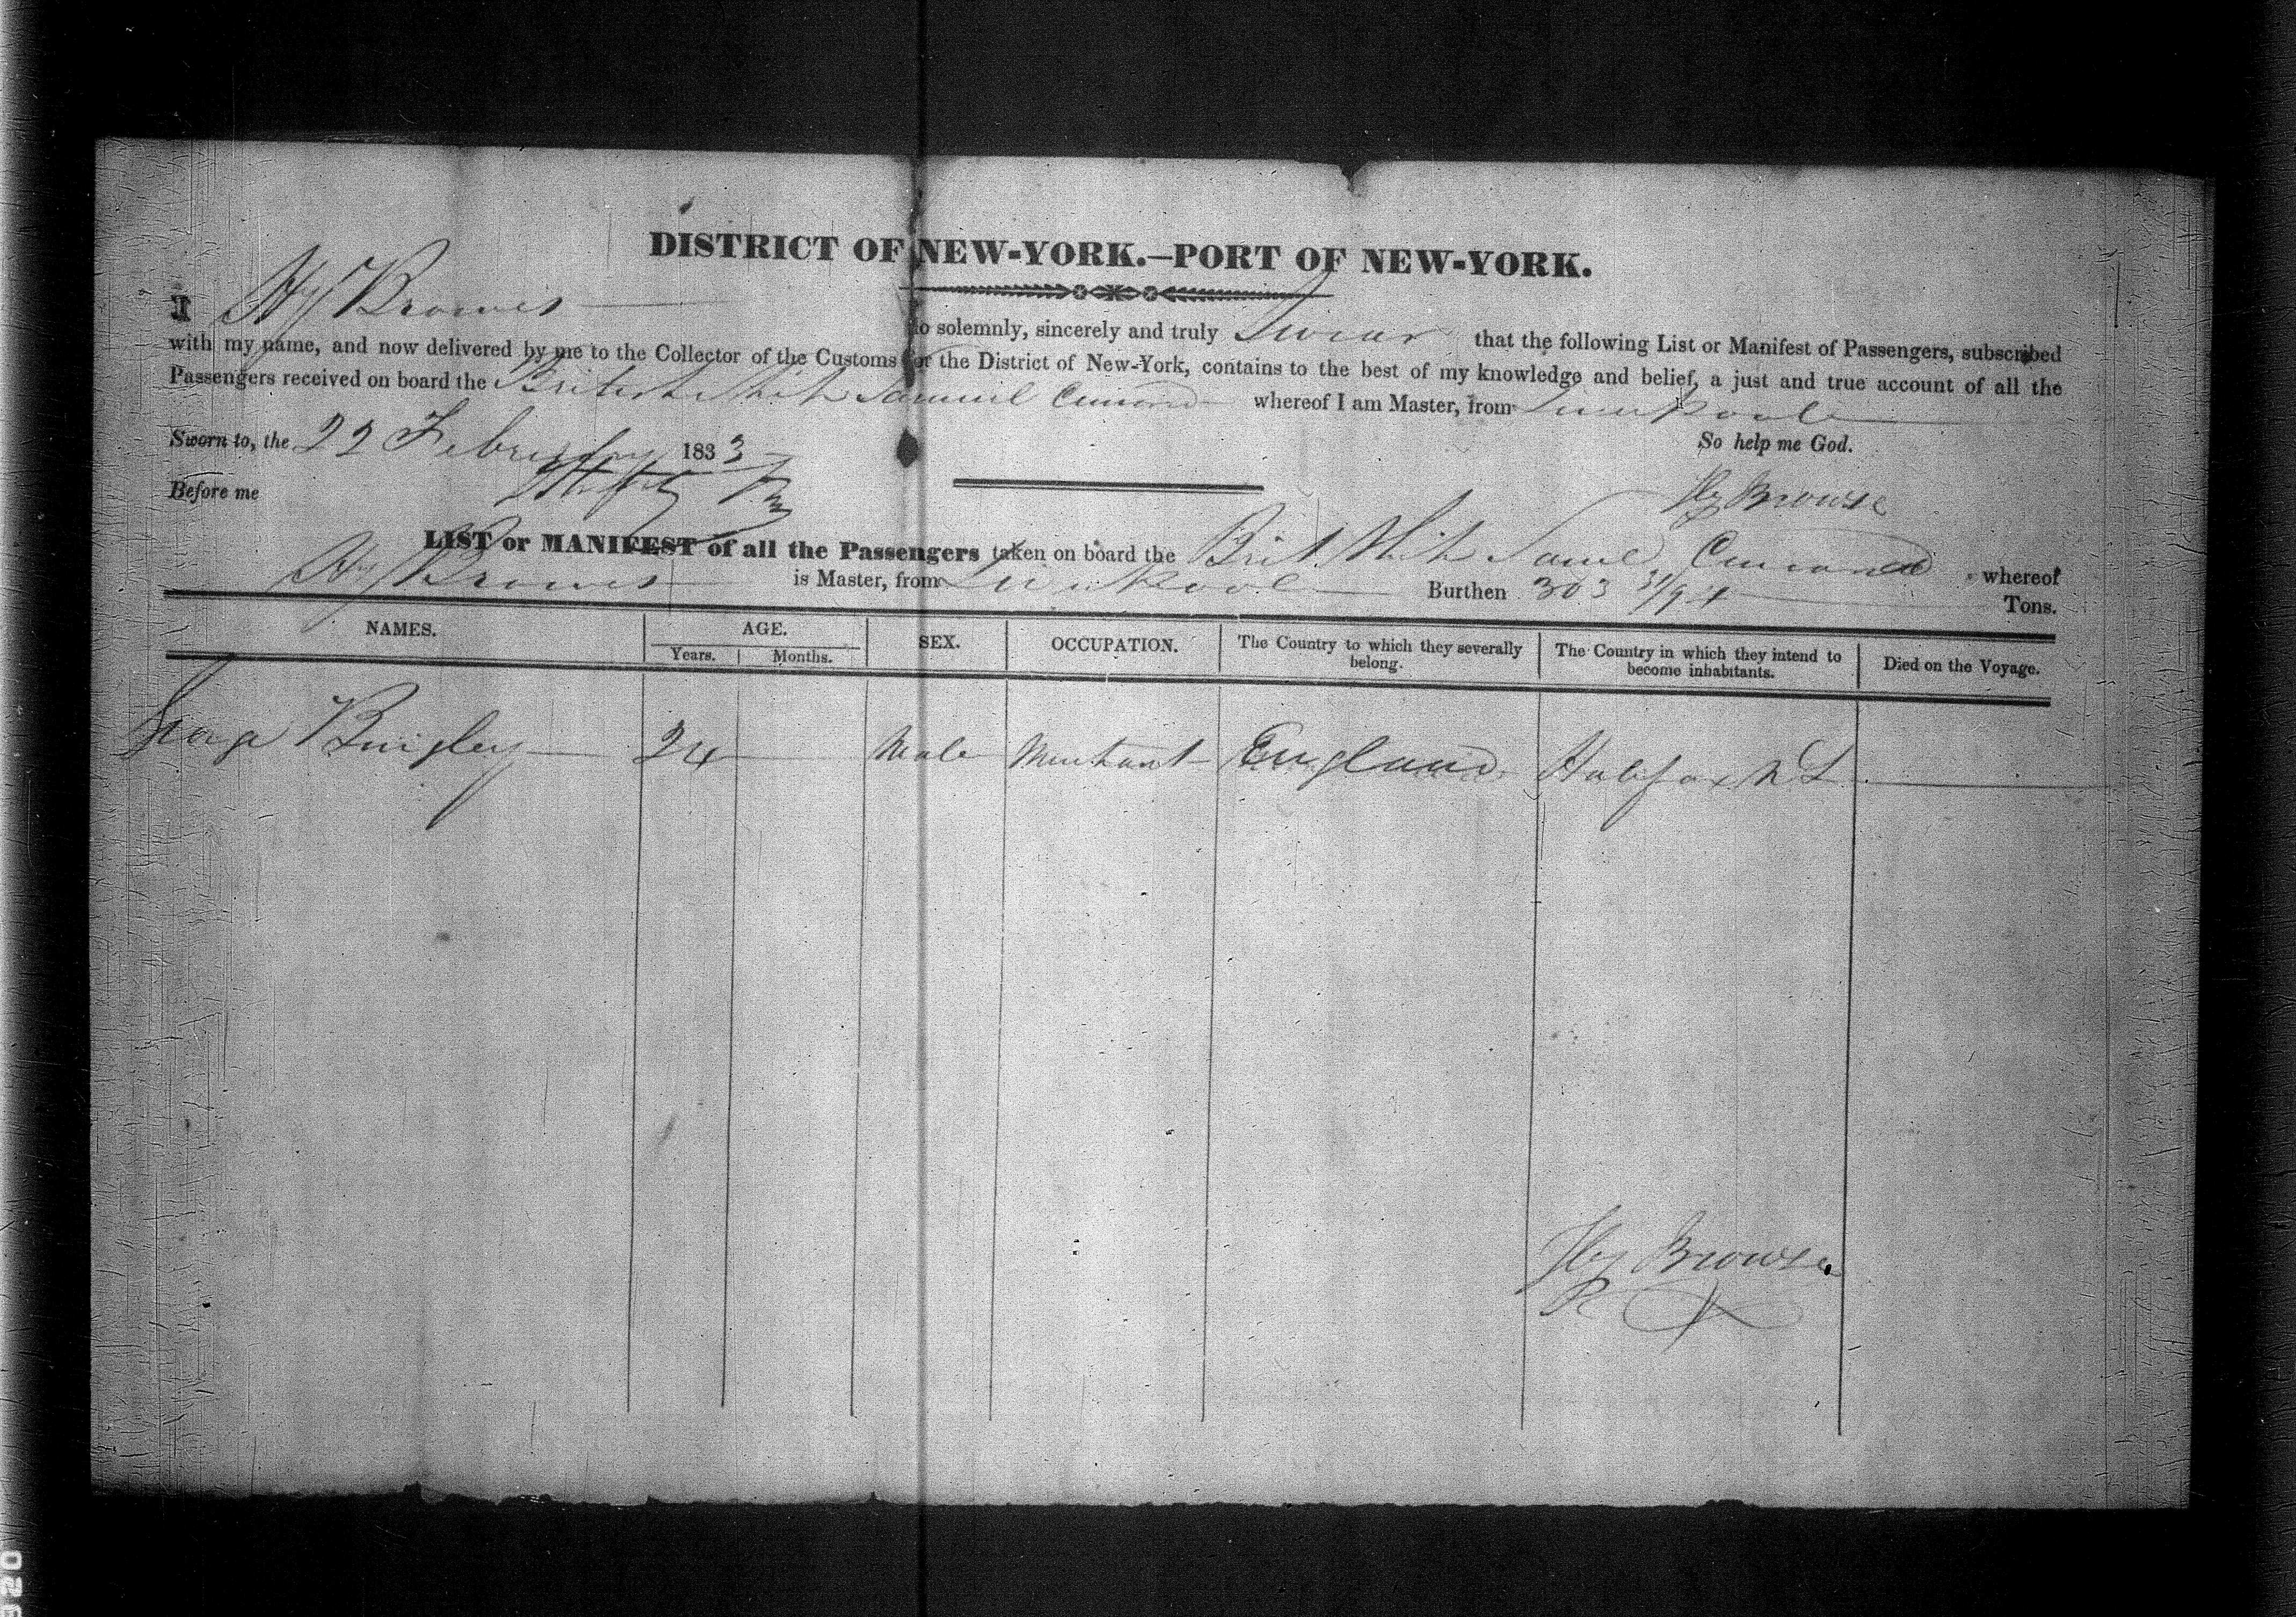 DISTRICT OF NEW-YORK.—PORT OF NEW-YORK.
I Hy Browse do solemnly, sincerely and truly Swear that the following List or Manifest of Passengers, subscribed
with my name, and now delivered by me to the Collector of the Customs for the District of New-York, contains to the best of my knowledge and belief, a just and true account of all the
Passengers received on board the British Ship Samuel Cunard whereof I am Master, from Liverpool
Sworn to, the 22 February 1833 So help me God.
Before me Hy Browse
LIST or MANIFEST of all the Passengers taken on board the Brit. Ship Saml Cunard whereof
Hy Browse is Master, from Liverpool Burthen 303 31/94 Tons.
NAMES. AGE. SEX. OCCUPATION. The Country to which they severally belong. The Country in which they intend to become inhabitants. Died on the Voyage.
Years. Months.
George 24 Male Merchant England Halifax N S
Hy Browse
520